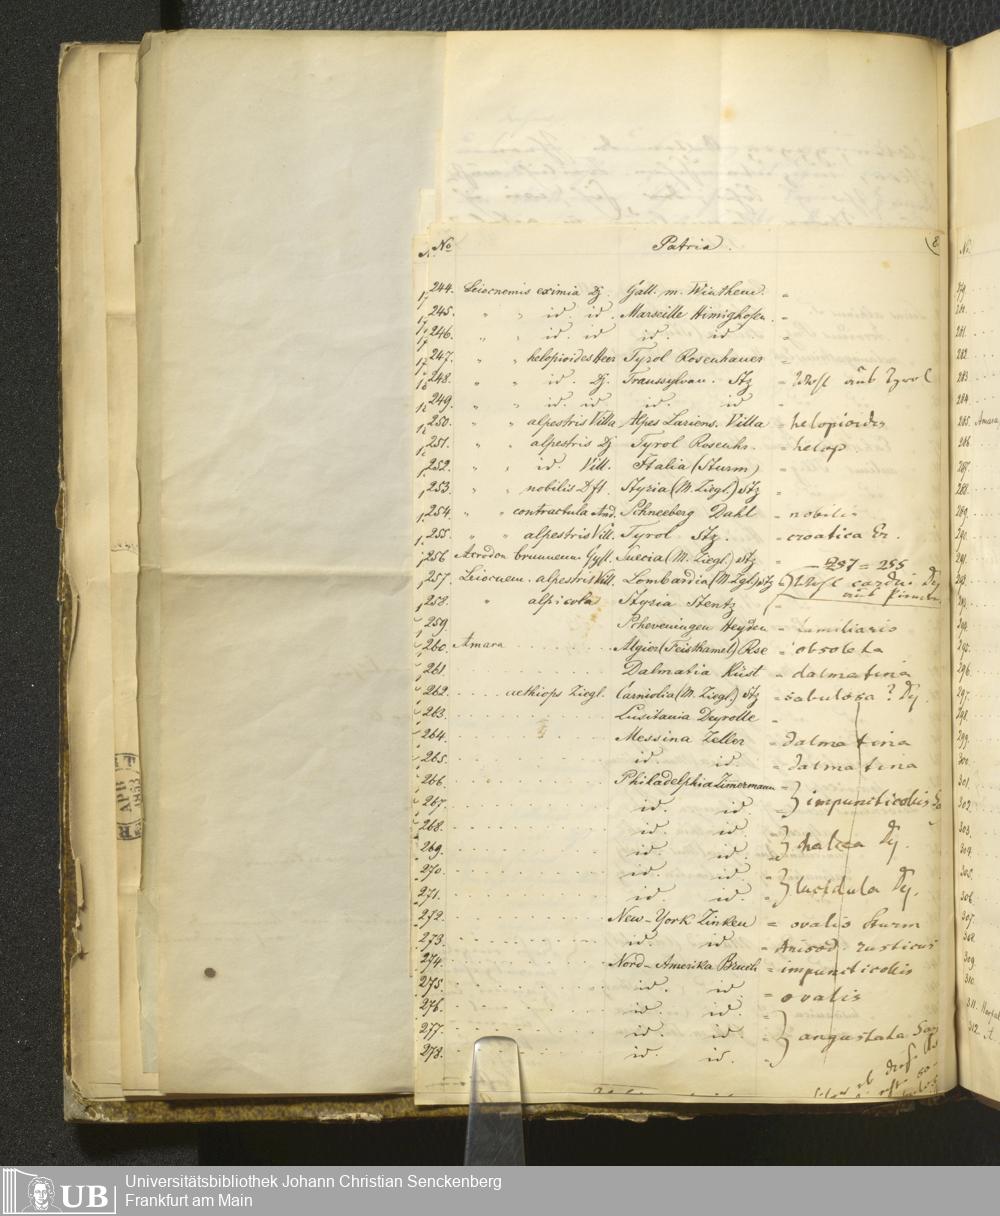 No Patria. 8
244. Leiocnemis eximia Dj. Gall. m. Winthem. =
245. " " id. id. Marseille Himighofen. =
246. " " id. id id. id =
247. " " helopioides Heer Tyrol Rosenhauer =
248. " " id. Dj. Transsylvan. Stz = Tyrol
249. " " id. id id. id =
250. " " alpestris Villa Alpes Lariens. Villa = helopioides
251. " " alpestris Dj Tyrol Rosenhr. = helop.
252. " " id. Vill. Italia (Sturm) =
253. " " nobilis Dft. Styria (M. Ziegl.) Stz =
254. " " contractula And. Schneeberg Dahl = nobilis
255. " " alpestris Vill. Tyrol Stz. = croatica Er.
256 Acrodon brunneum Gyll. Suecia (M. Ziegl.) Stz =
257 = 255
257. Leiocnem. alpestris Vill. Lombardia (M. Zgl.) Stz cardui Dj
258. " alpicola Styria Stentz =
259. Scheveningen Heyden = familiaris
260. Amara Algier (Feisthamel) Rse = obsoleta
261. Dalmatia Küst = dalmatina
262. aethiops Ziegl. Carniolia (M. Ziegl.) Stz = sabulosa? Dj.
263. Lusitania Deyrolle =
264. Messina Zeller = dalmatina
265. id. id = dalmatina
266. Philadelphia Zimermann =
267. id. id } impuncticollis Sa
268. id. id.
269. id id. } chalcea Dj.
270. id. id
271. id. id. } lucidula Dj.
272. New-York Zinken = ovalis Sturm
273. id. id = Anisod. rusticus
274. Nord-Amerika Bruch = impuncticollis
275. id. id = ovalis
276. id. id. =
277. id id } angustata Say
278. id. id.
No.
279
280.
281.
282.
283
284.
285. Amara
286
287.
288.
289.
290.
291.
292.
293.
294.
295.
296.
297.
298.
299.
300.
301.
302.
303.
304.
305.
306.
307.
308.
309.
310.
311.
312.
APR
1853
UB
Universitätsbibliothek Johann Christian Senckenberg
Frankfurt am Main